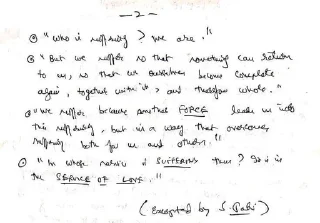 — 2 —
"Who is suffering? We are."
"But we suffer so that something can return
to us, so that we ourselves become complete
again, together with us, and therefore whole."
"We suffer because another FORCE leads us into
this suffering, but in a way that overcomes
suffering both for us and others."
"In whose nature is SUFFERING then? It is in
the SERVICE OF LOVE."
(Excerpted by S.